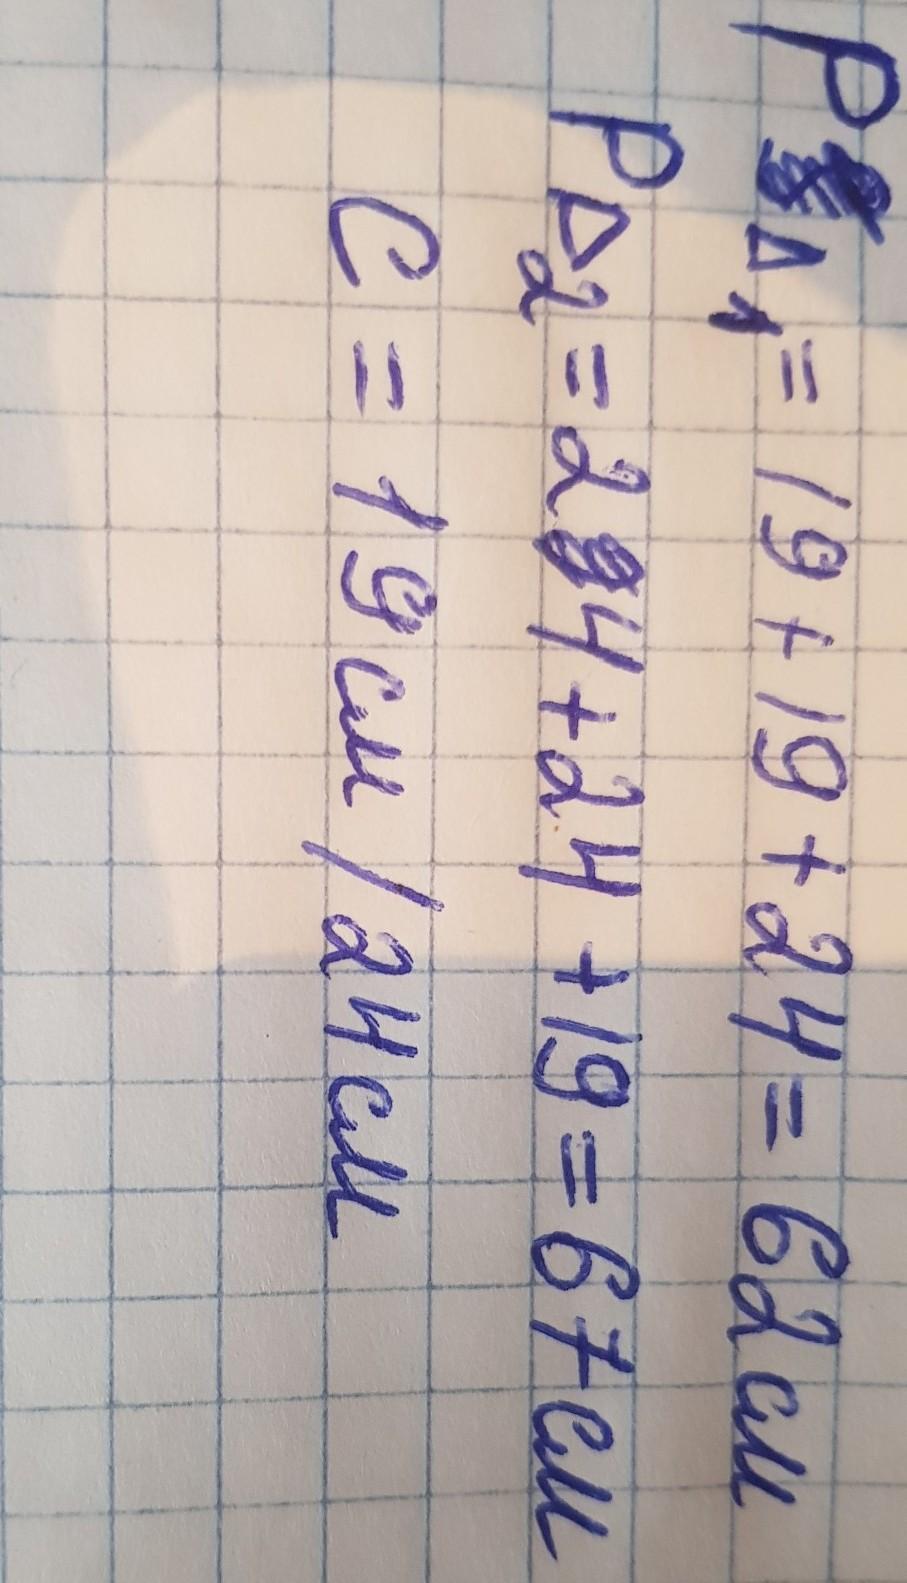 P△1 = 19+19+24=62см
P△2=24+24+19=67см
C = 19см/24см